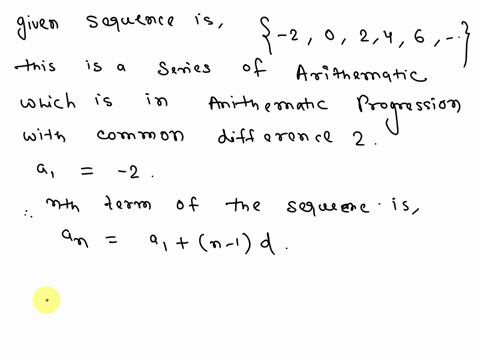 given sequence is, {-2, 0, 2, 4, 6, ...}
this is a series of Arithematic
which is in Arithematic Progression
with common difference 2.
a₁ = -2.
∴ nth term of the sequence is,
aₙ = a₁ + (n-1) d.